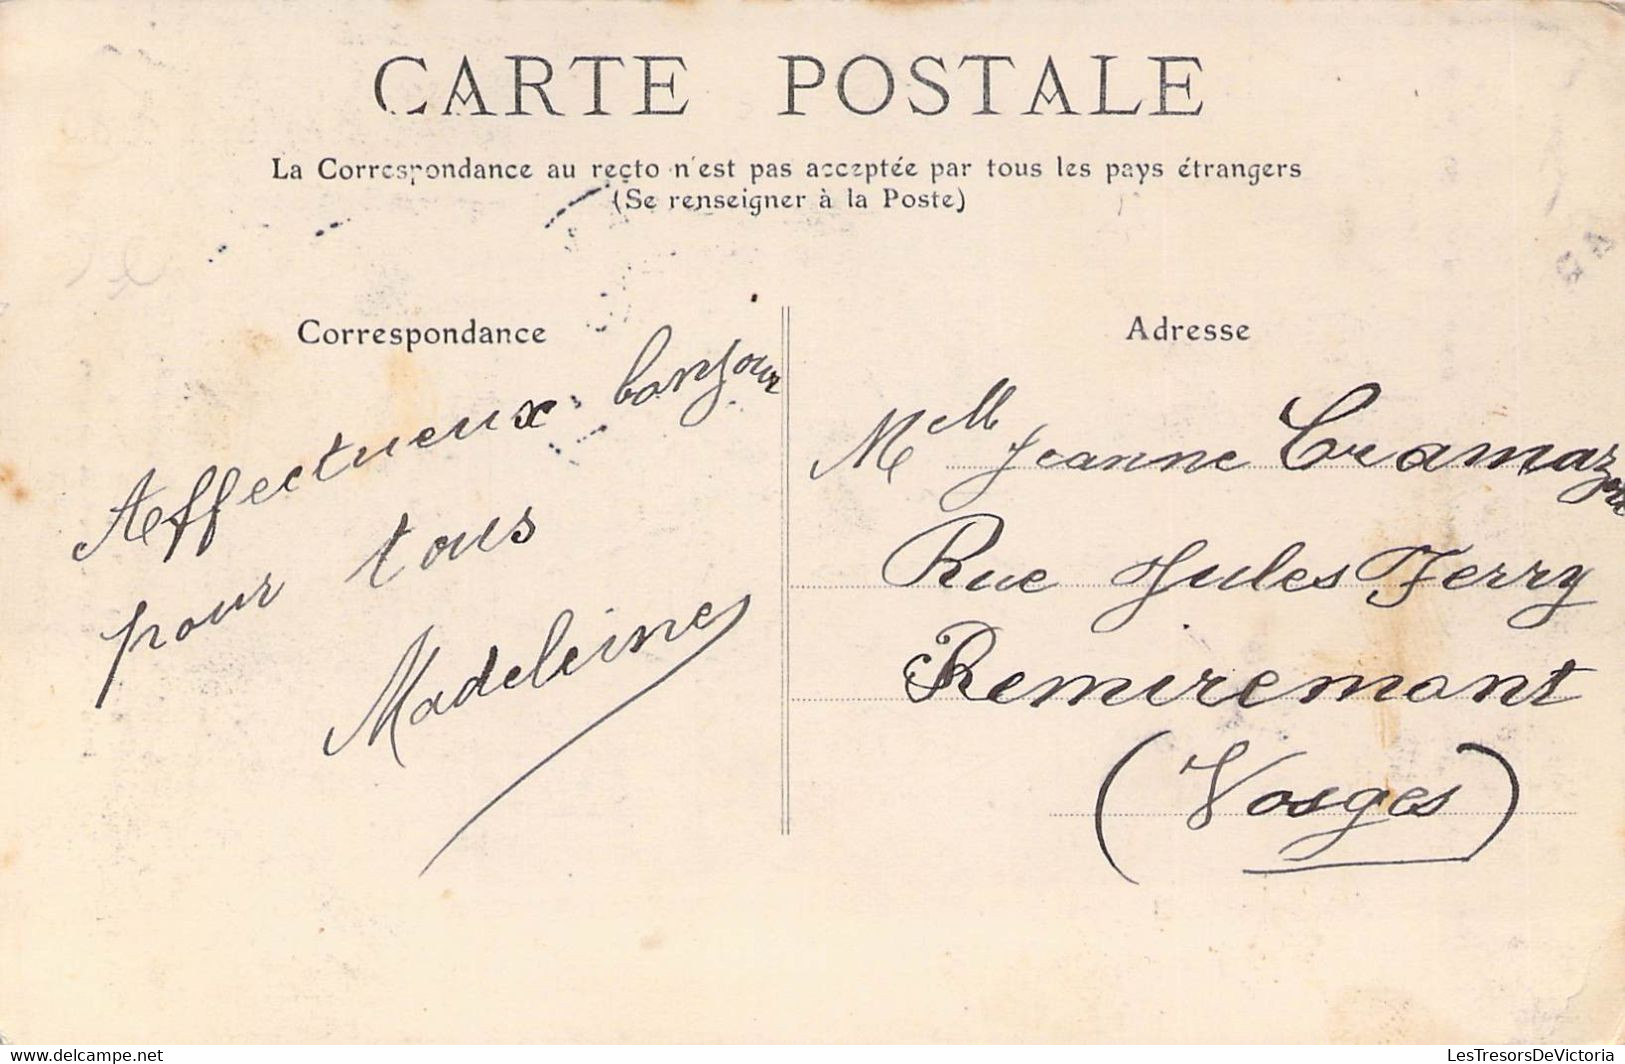 CARTE POSTALE
La Correspondance au recto n'est pas acceptée par tous les pays étrangers
(Se renseigner à la Poste)
Correspondance
Affectueux bonjour
pour tous
Madeleine
Adresse
Melle Jeanne
Rue Jules Ferry
Remiremont
(Vosges)
LesTresorsDeVictoria